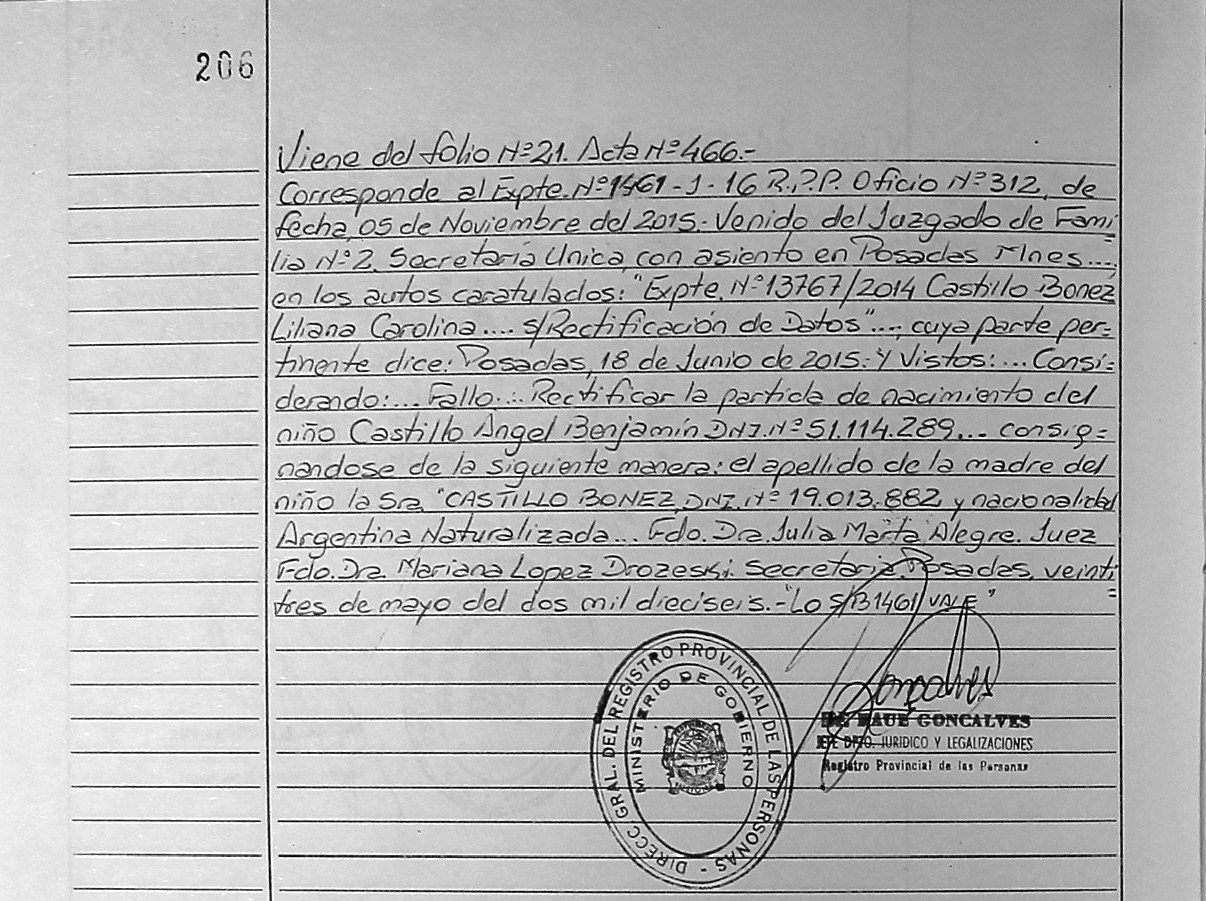 206
Viene del folio Nº 21. Acta Nº 466.-
Corresponde al Expte. Nº 1461-J-16 R.P.P. Oficio Nº 312, de
fecha, 05 de Noviembre del 2015.- Venido del Juzgado de Fami=
lia Nº 2, Secretaría Unica, con asiento en Posadas Mnes...,
en los autos caratulados: "Expte. Nº 13767/2014 Castillo Bonez
Liliana Carolina.... s/Rectificación de Datos"..., cuya parte per=
tinente dice: Posadas, 18 de Junio de 2015.- Y Vistos:... Consi=
derando:... Fallo:... Rectificar la partida de nacimiento del
niño Castillo Angel Benjamín DNI. Nº 51.114.289... consig=
nandose de la siguiente manera: el apellido de la madre del
niño la Sra. "CASTILLO BONEZ, DNI. Nº 19.013.882, y nacionalidad
Argentina Naturalizada... Fdo. Dra. Julia Marta Alegre. Juez
Fdo. Dra. Mariana Lopez Drozeski. Secretaria. Posadas, veinti=
tres de mayo del dos mil dieciseis.- "Lo S/B 1461 VALE"
DIRECC GRAL. DEL REGISTRO PROVINCIAL DE LAS PERSONAS -
MINISTERIO DE GOBIERNO
Gonçalves
GONCALVES
JEFE DPTO. JURIDICO Y LEGALIZACIONES
Registro Provincial de las Personas